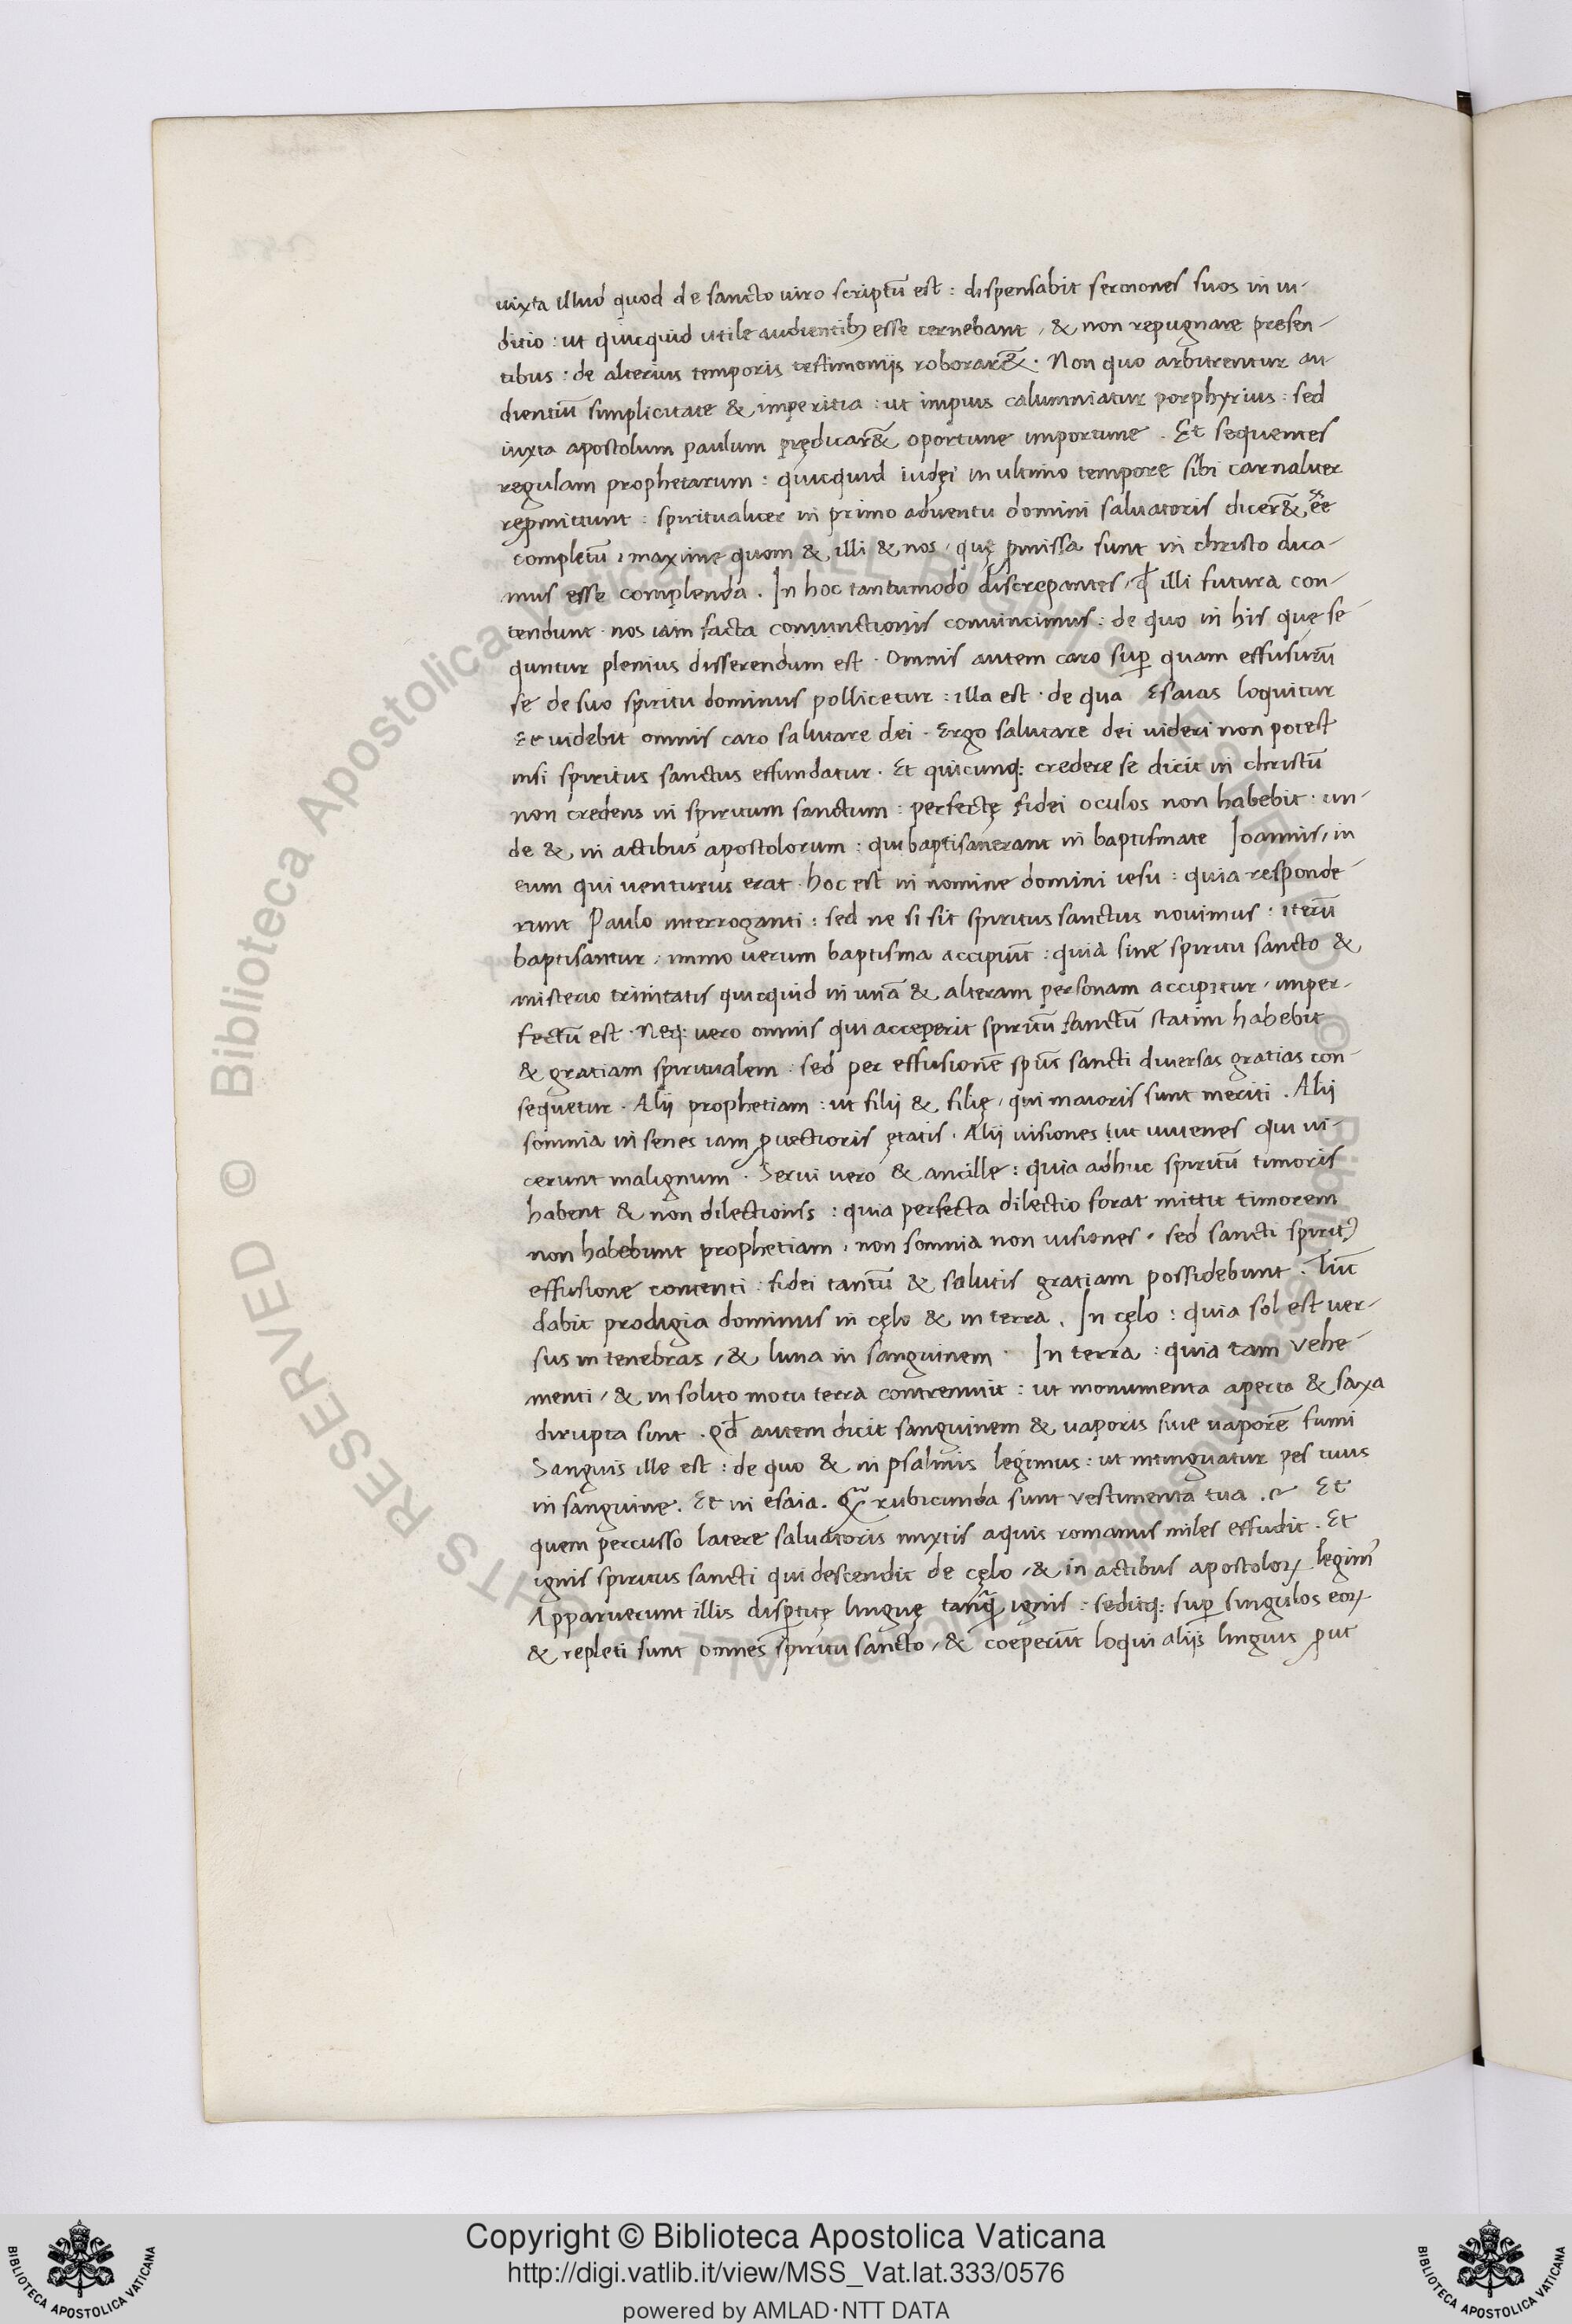 iuxta illud quod de sancto uiro scriptũ est : dispensabit sermones suos in iu-
ditio : ut quicquid utile audientibꝫ esse cernebant , & non repugnare presen-
tibus : de alterius temporis testimonijs roborar̃& . Non quo arbitrentur au-
dientiũ simplicitate & imperitia : ut impius calumniatur porphyrius : sed
iuxta apostolum paulum prędicar̃& oportune importune . Et sequentes
regulam prophetarum : quicquid iudęi in ultimo tempore sibi carnaliter
repmittunt : spiritualiter in primo aduentu domini saluatoris dicer̃& eẽ
completũ , maxime quom & illi & nos , quę ꝓmissa sunt in christo dica-
mus esse complenda . In hoc tantumodo discrepantes , qđ illi futura con-
tendunt . nos iam facta coniunctionis conuincimus : de quo in his quę se-
quntur plenius disserendum est . Omnis autem caro suꝑ quam effusurũ
se de suo spiritu dominus pollicetur : illa est . de qua Esaias loquitur
Et uidebit omnis caro salutare dei . Ergo salutare dei uideri non potest
nisi spiritus sanctus effundatur . Et quicunq: credere se dicit in christũ
non credens in spiritum sanctum : perfectę fidei oculos non habebit . un-
de & in actibus apostolorum : qui baptisauerant in baptismate Ioannis , in
eum qui uenturus erat . hoc est in nomine domini iesu : quia responde-
runt Paulo interroganti : sed ne si sit spiritus sanctus nouimus : iterũ
baptisantur , immo uerum baptisma accipiũt : quia sine spiritu sancto &
misterio trinitatis quicquid in unã & alteram personam accipitur , imper-
fectũ est . Neq: vero omnis qui acceperit spiritũ sanctũ statim habebit
& gratiam spiritualem : sed per effusionẽ spũs sancti diuersas gratias con-
sequetur . Alij prophetiam : ut filij & filię , qui maioris sunt meriti . Alij
somnia in senes iam ꝓuectioris ętatis . Alij uisiones : ut iuuenes qui ui-
cerunt malignum . Serui vero & ancille : quia adhuc spiritũ timoris
habent & non dilectionis : quia perfecta dilectio forat mittit timorem
non habebunt prophetiam , non somnia non uisiones , sed sancti spiritꝰ
effusione contenti : fidei tantũ & salutis gratiam possidebunt . Tũc
dabit prodigia dominus in cęlo & in terra . In cęlo : quia sol est uer-
sus in tenebras , & luna in sanguinem . In terra : quia tam vehe-
menti , & insolito motu terra contremuit : ut monumenta aperta & saxa
dirupta sint . Qđ autem dicit sanguinem & uaporis siue uaporẽ fumi
Sanguis ille est : de quo & in psalmis legimus : ut intinguatur pes tuus
in sanguine . Et in esaia . Qr̃ rubicunda sunt vestimenta tua . & Et
quem percusso latere saluatoris mixtis aquis romanus miles effudit . Et
ignis spiritus sancti qui descendit de cęlo , & in actibus apostoloꝝ legimꝰ
Apparuerunt illis disꝑtitę linguę tanq̃ ignis : seditq: suꝑ singulos eoꝝ
& repleti sunt omnes spiritu sancto , & coeperũt loqui alijs linguis ꝓut
Copyright © Biblioteca Apostolica Vaticana
http://digi.vatlib.it/view/MSS_Vat.lat.333/0576
powered by AMLAD·NTT DATA